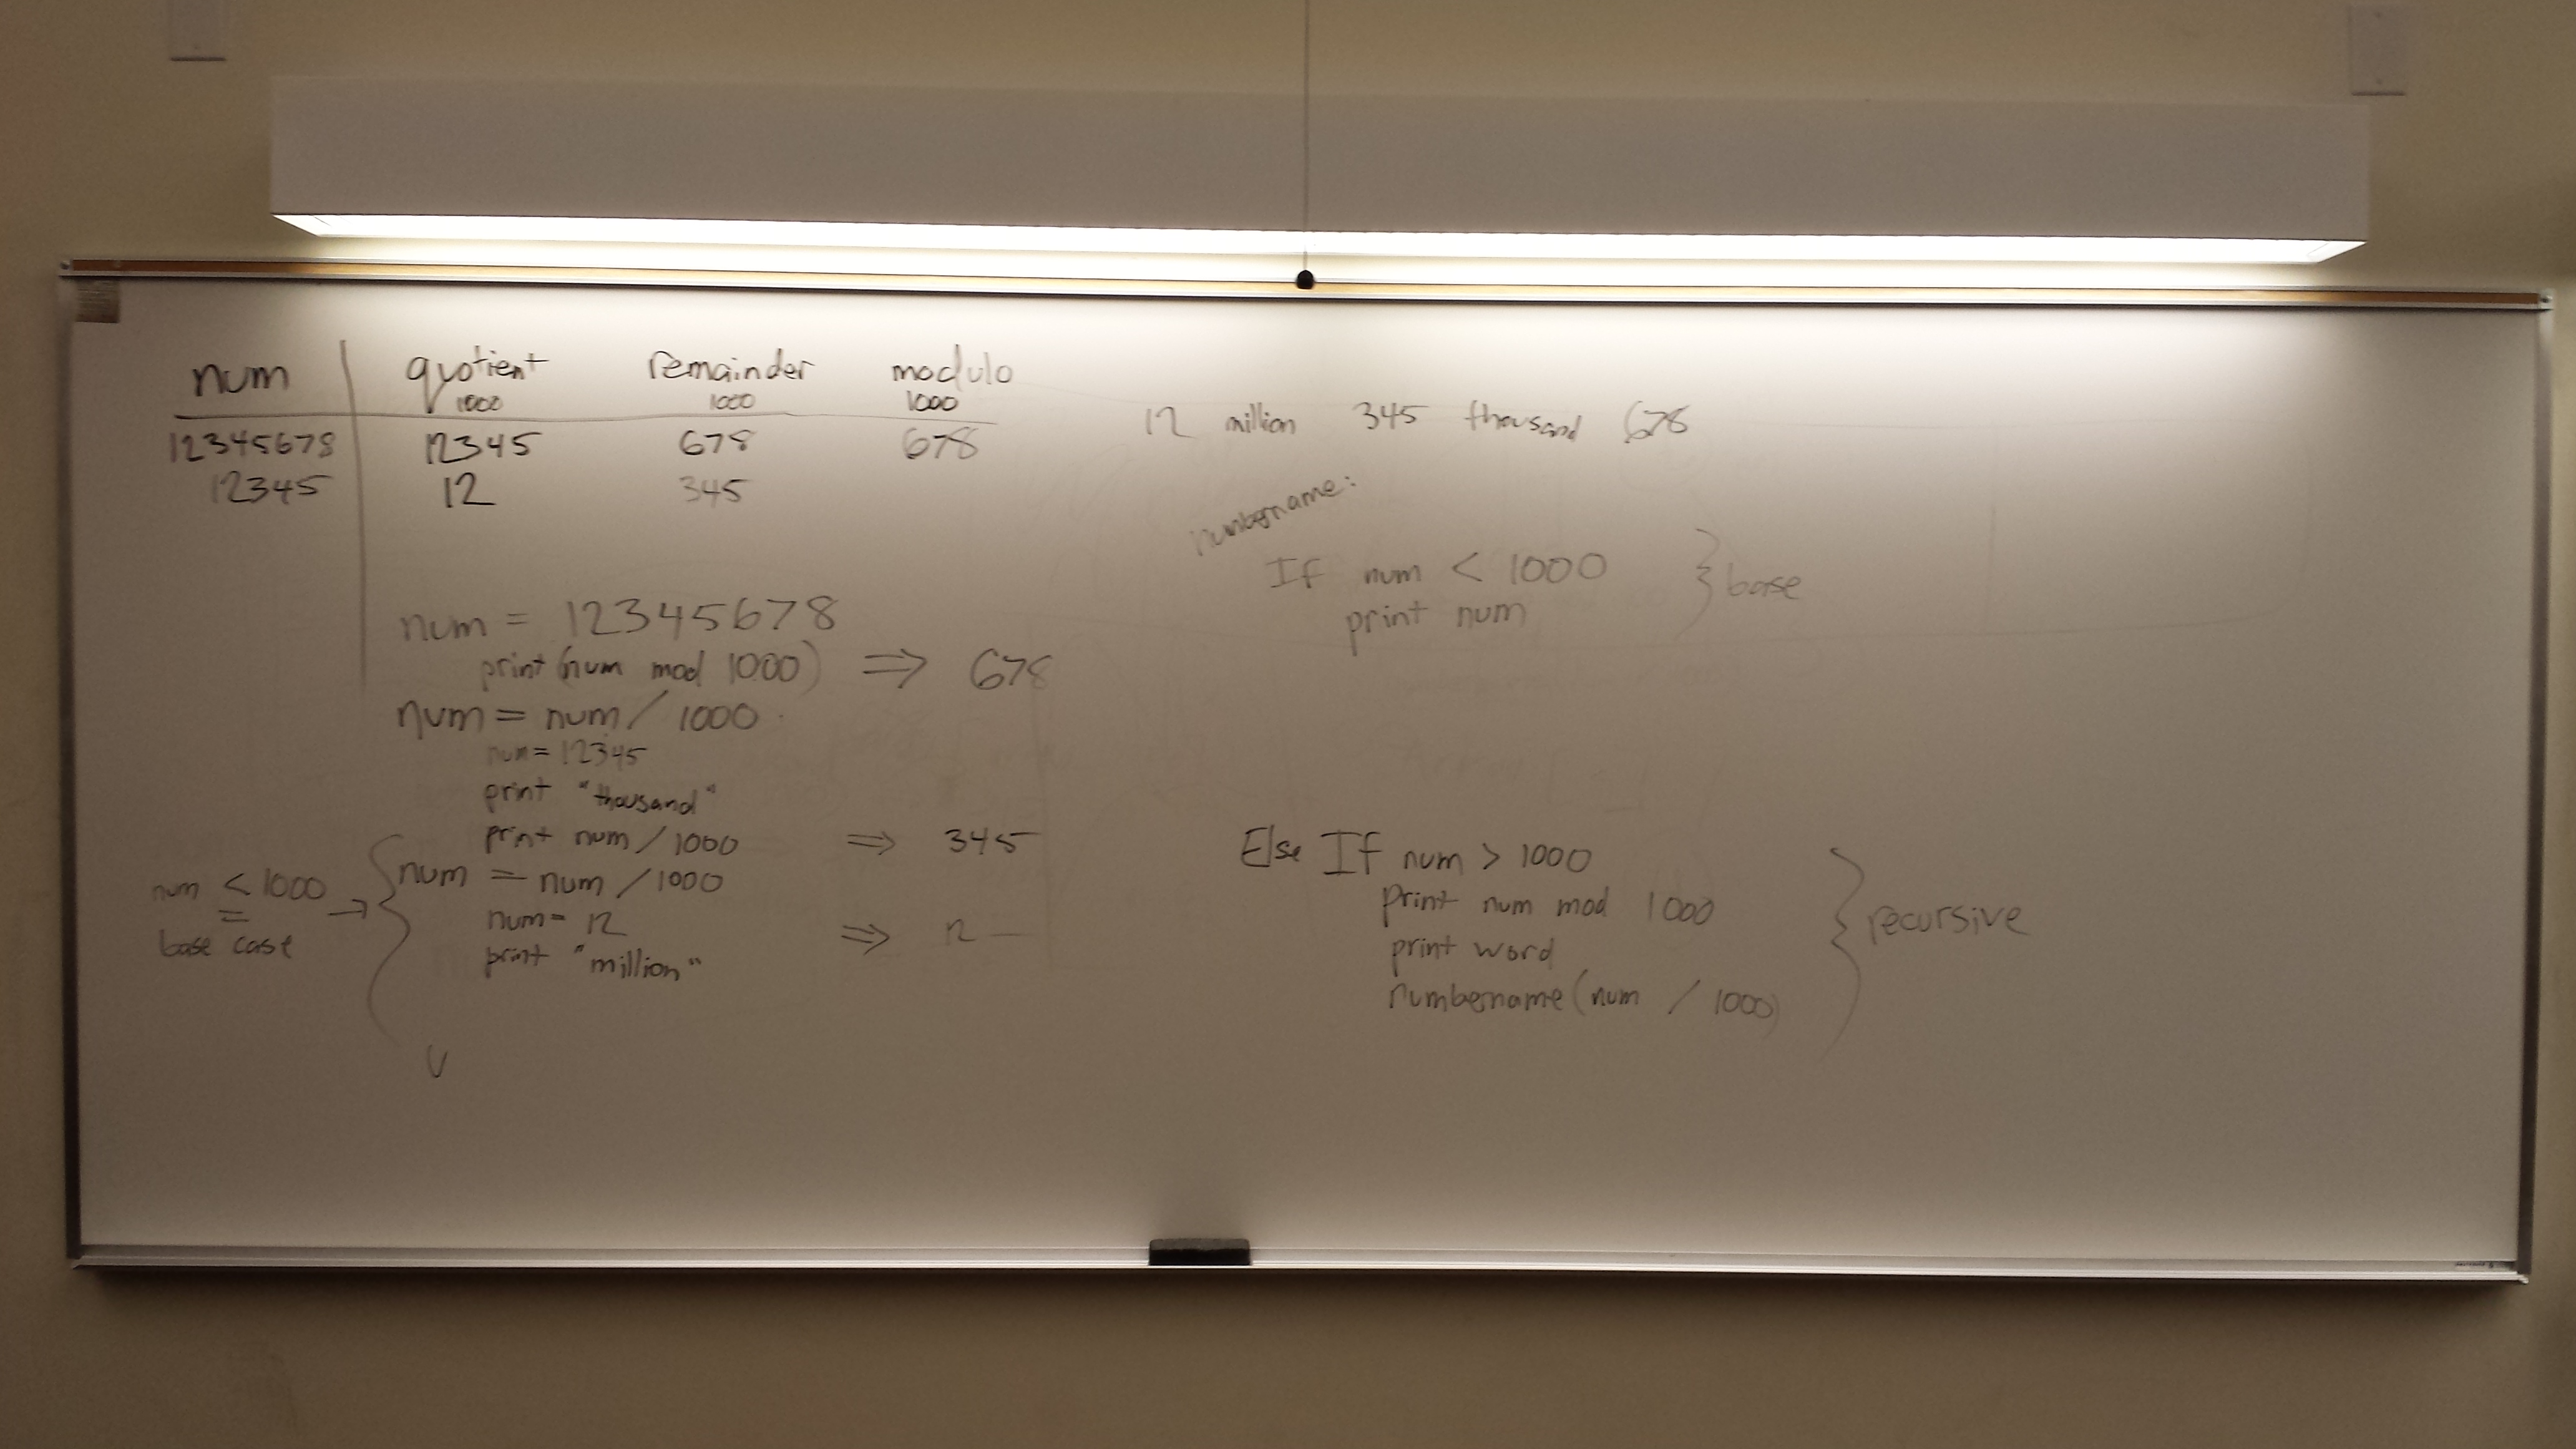 num quotient remainder modulo
1000 1000 1000
12345678 12345 678 678
12345 12 345
num = 12345678
print (num mod 1000) ⇒ 678
num = num / 1000
num = 12345
print "thousand"
print num / 1000 ⇒ 345
num = num / 1000
num = 12 ⇒ 12
print "million"
num < 1000 →
=
base case
12 million 345 thousand 678
numbername:
If num < 1000
print num
} base
Else If num > 1000
print num mod 1000
print word
numbername (num / 1000)
} recursive